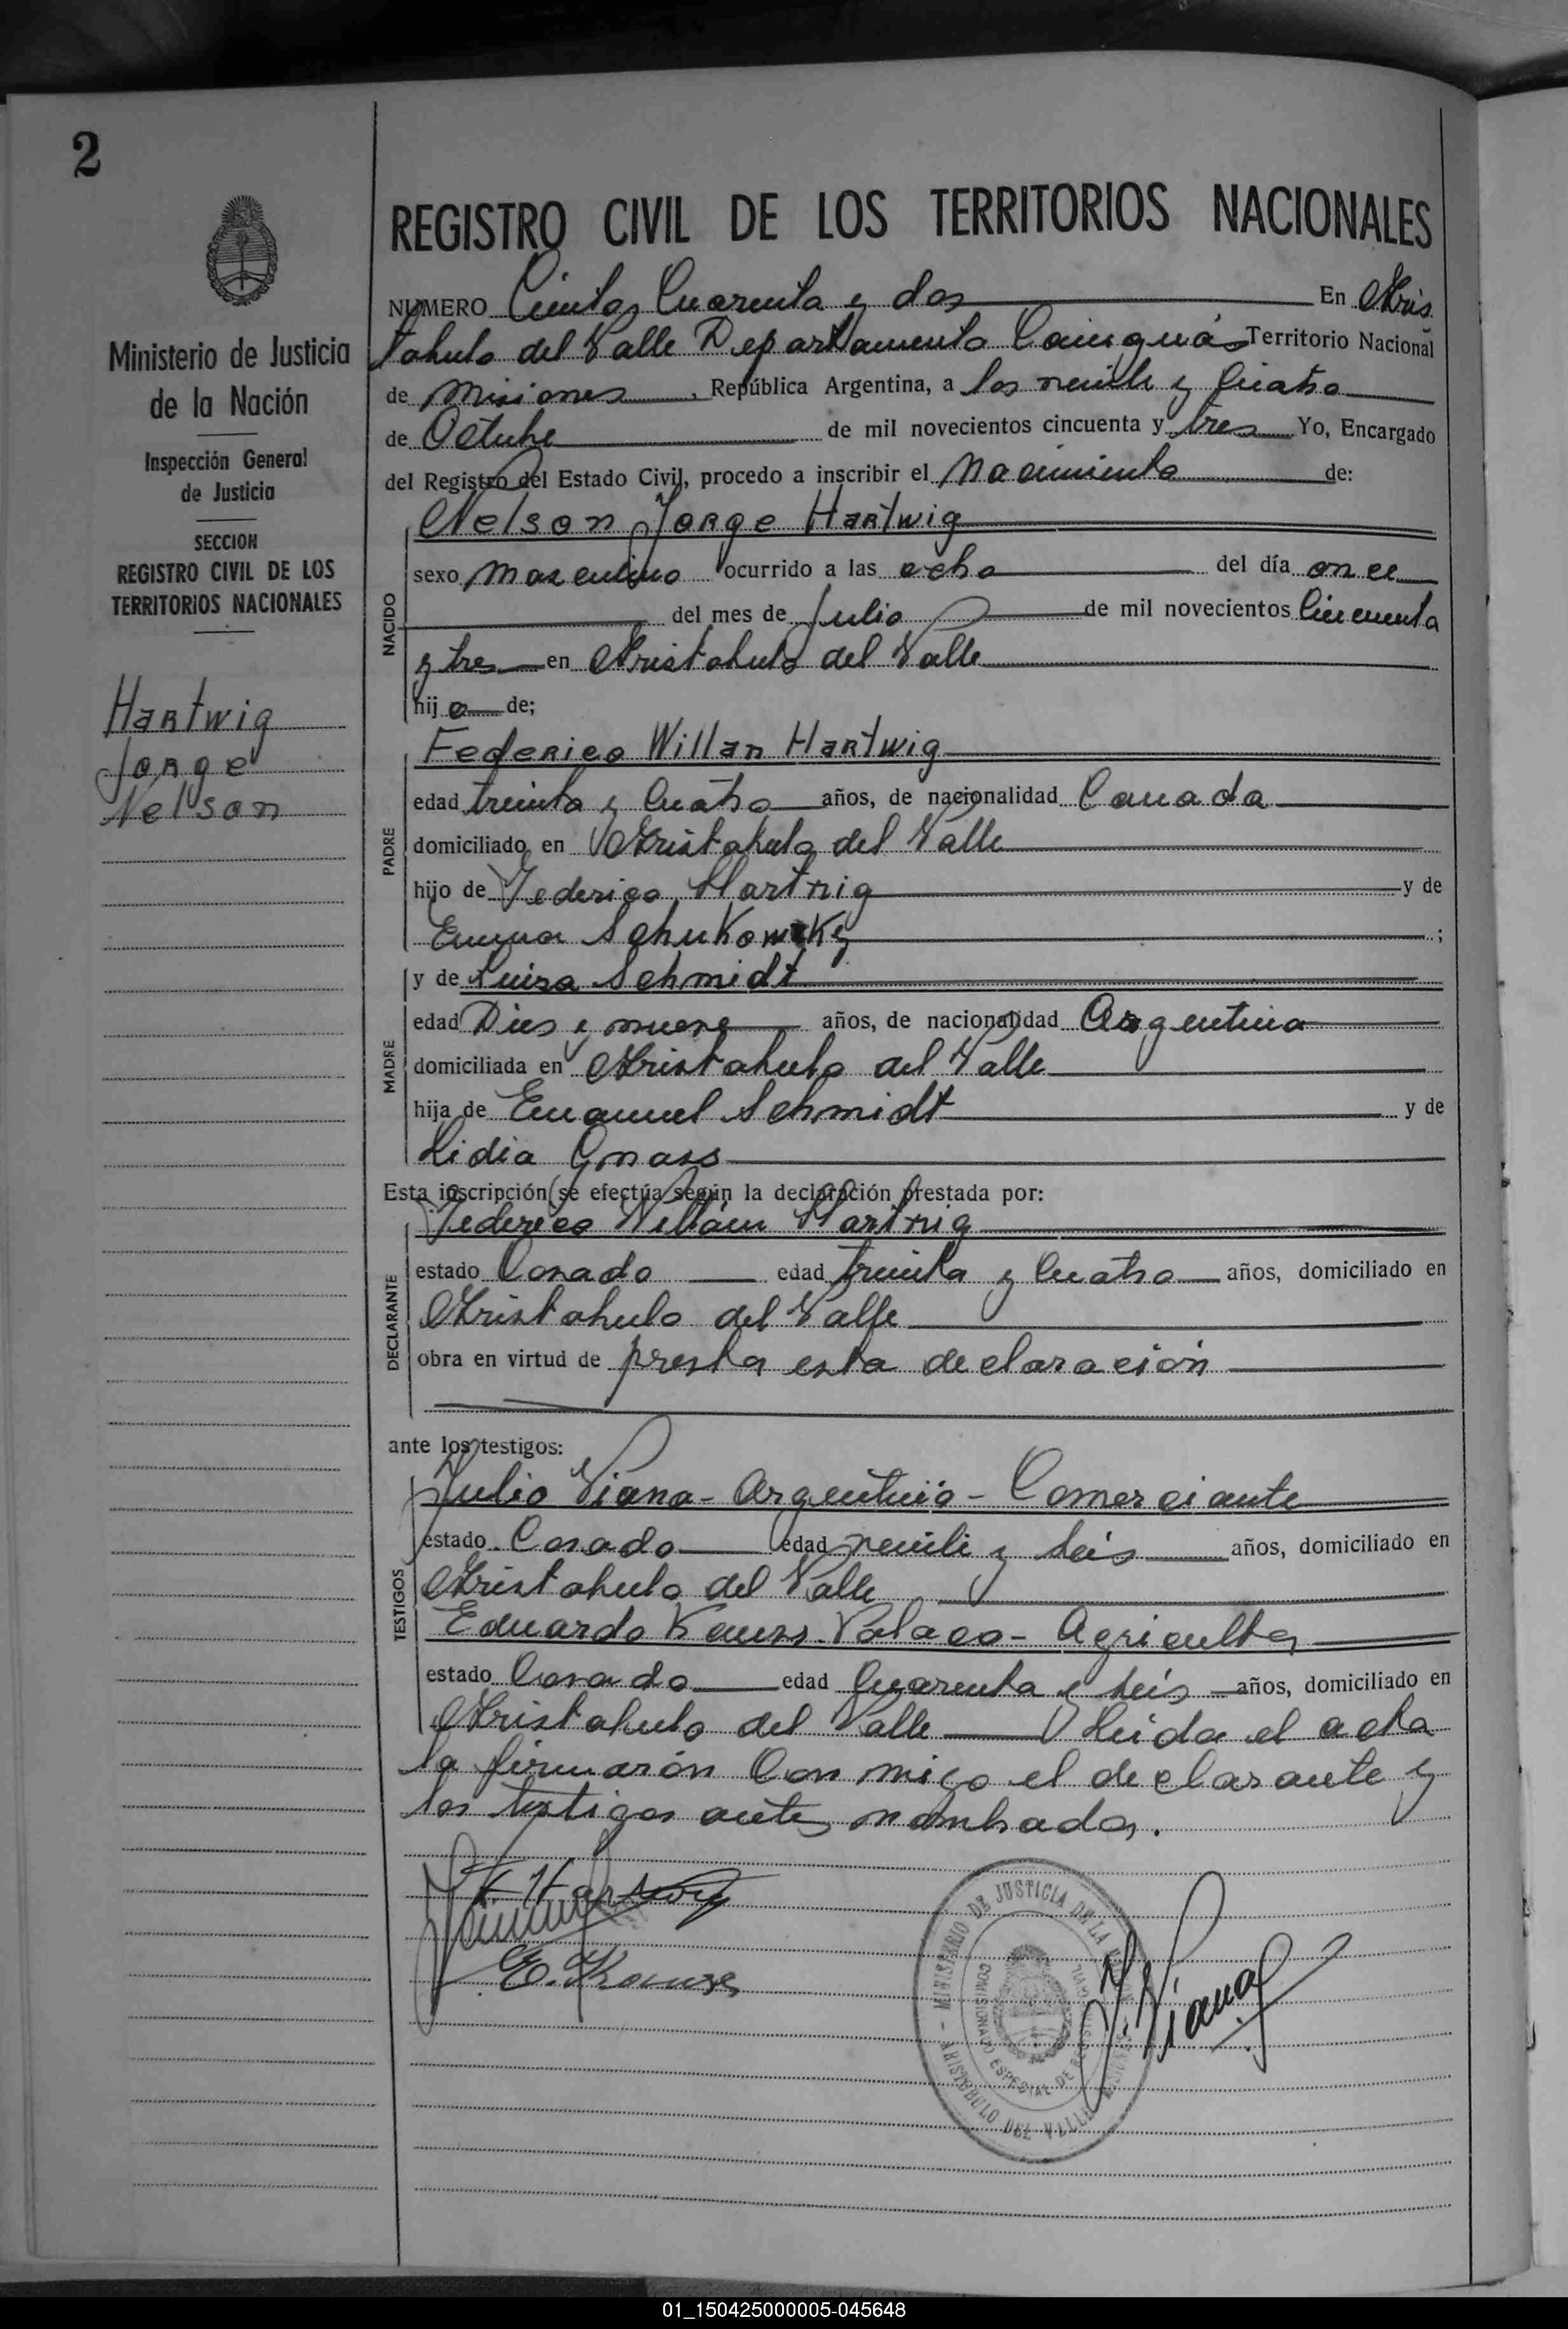 2
Ministerio de Justicia
de la Nación
Inspección General
de Justicia
SECCION
REGISTRO CIVIL DE LOS
TERRITORIOS NACIONALES
Hartwig
Jorge
Nelson
REGISTRO CIVIL DE LOS TERRITORIOS NACIONALES
NUMERO Cientos Cuarenta y dos En Aris
tobulo del Valle Departamento Cainguás Territorio Nacional
de Misiones, República Argentina, a los veinte y Cuatro
de Octubre de mil novecientos cincuenta y tres Yo, Encargado
del Registro del Estado Civil, procedo a inscribir el Nacimiento de:
Nelson Jorge Hartwig
NACIDO
sexo masculino ocurrido a las ocho del día once
del mes de Julio de mil novecientos Cincuenta
y tres en Aristobulo del Valle
hijo de;
Federico Willan Hartwig
PADRE
edad treinta y Cuatro años, de nacionalidad Canada
domiciliado en Aristobulo del Valle
hijo de Federico Hartwig y de
Emma Schukowsky;
y de Luisa Schmidt
MADRE
edad Dies y nueve años, de nacionalidad Argentina
domiciliada en Aristobulo del Valle
hija de Emanuel Schmidt y de
Lidia Gnass
Esta inscripción se efectúa según la declaración prestada por:
Federico Willám Hartwig
DECLARANTE
estado Casado edad treinta y Cuatro años, domiciliado en
Aristobulo del Valle
obra en virtud de presta esta declaración
ante los testigos:
Julio Viana - Argentino - Comerciante
TESTIGOS
estado Casado edad veinte y seis años, domiciliado en
Aristobulo del Valle
Eduardo Polaco - Agricultor
estado Casado edad Cuarenta y seis años, domiciliado en
Aristobulo del Valle Leida el acta
la firmarón Con migo el declarante y
los testigos antes nombrados.
F. Hartwig
E. Krause
J. Viana
MINISTERIO DE JUSTICIA DE LA
ARISTOBULO DEL VALLE
01_150425000005-045648